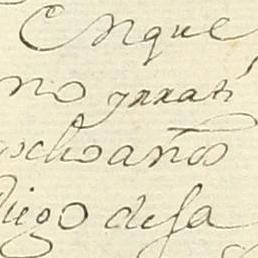 Enque
no yrrati
ochoaños
Diego desa